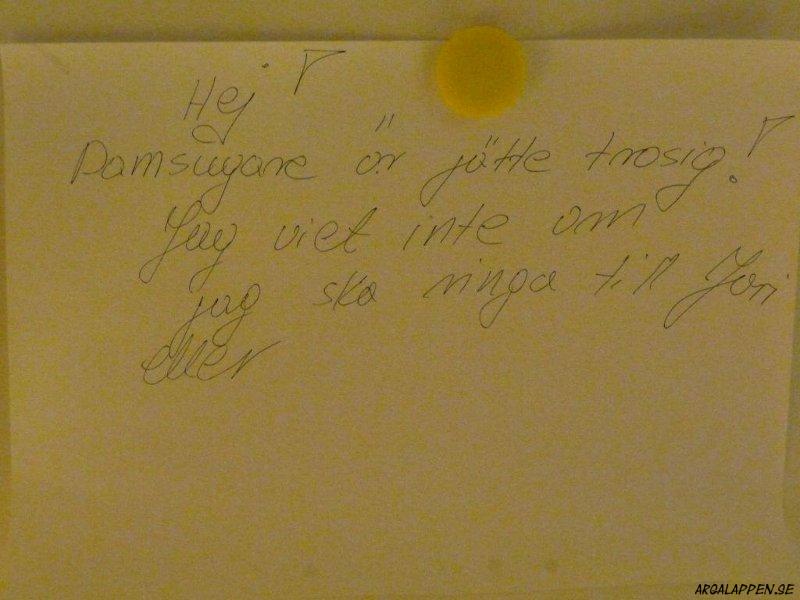 Hej!
Damsugare är jätte trasig!
Jag viet inte om
jag ska ringa till Jari
eller
ARGALAPPEN.SE